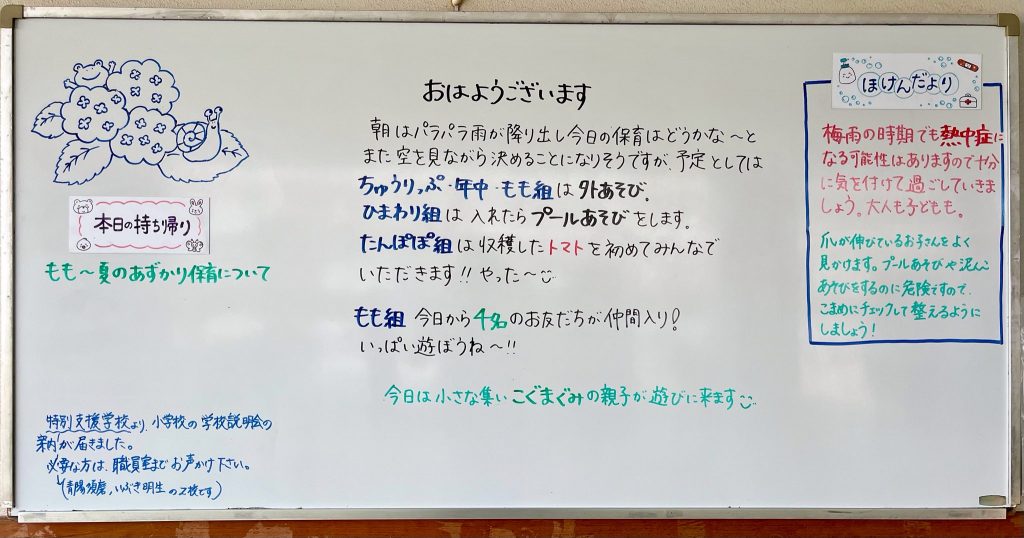 おはようございます
朝はパラパラ雨が降り出し今日の保育はどうかな〜と
また空を見ながら決めることになりそうですが、予定としては
ちゅうりっぷ・年中・もも組は外あそび。
ひまわり組は入れたらプールあそびをします。
たんぽぽ組は収穫したトマトを初めてみんなで
いただきます!!やった〜
もも組 今日から4名のお友だちが仲間入り!
いっぱい遊ぼうね〜!!
今日は小さな集いこぐまぐみの親子が遊びに来ます
本日の持ち帰り
もも〜夏のあずかり保育について
特別支援学校より、小学校の学校説明会の
案内が届きました。
必要な方は、職員室までお声かけ下さい。
(青陽須磨、いぶき明生の2校です)
ほけんだより
梅雨の時期でも熱中症に
なる可能性はありますので十分
に気を付けて過ごしていきま
しょう。大人も子どもも。
爪が伸びているお子さんをよく
見かけます。プールあそびや泥んこ
あそびをするのに危険ですので、
こまめにチェックして整えるように
しましょう!